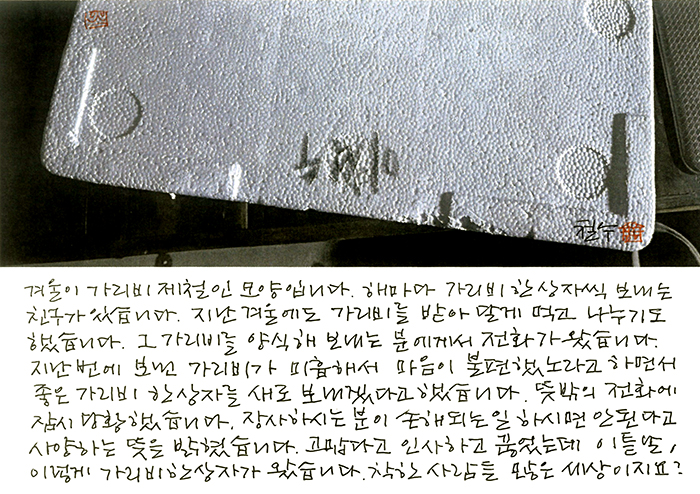 철수
겨울이 가리비 제철인 모양입니다. 해마다 가리비 한 상자씩 보내는
친구가 있습니다. 지난 겨울에도 가리비를 받아 달게 먹고 나누기도
했습니다. 그 가리비를 양식해 보내는 분에게서 전화가 왔습니다.
지난번에 보낸 가리비가 미흡해서 마음이 불편했노라고 하면서
좋은 가리비 한 상자를 새로 보내겠다고 했습니다. 뜻밖의 전화에
잠시 당황했습니다. 장사하시는 분이 손해되는 일 하시면 안된다고
사양하는 뜻을 밝혔습니다. 고맙다고 인사하고 끊었는데 이틀 뒤,
이렇게 가리비 한 상자가 왔습니다. 착한 사람들 많은 세상이지요?